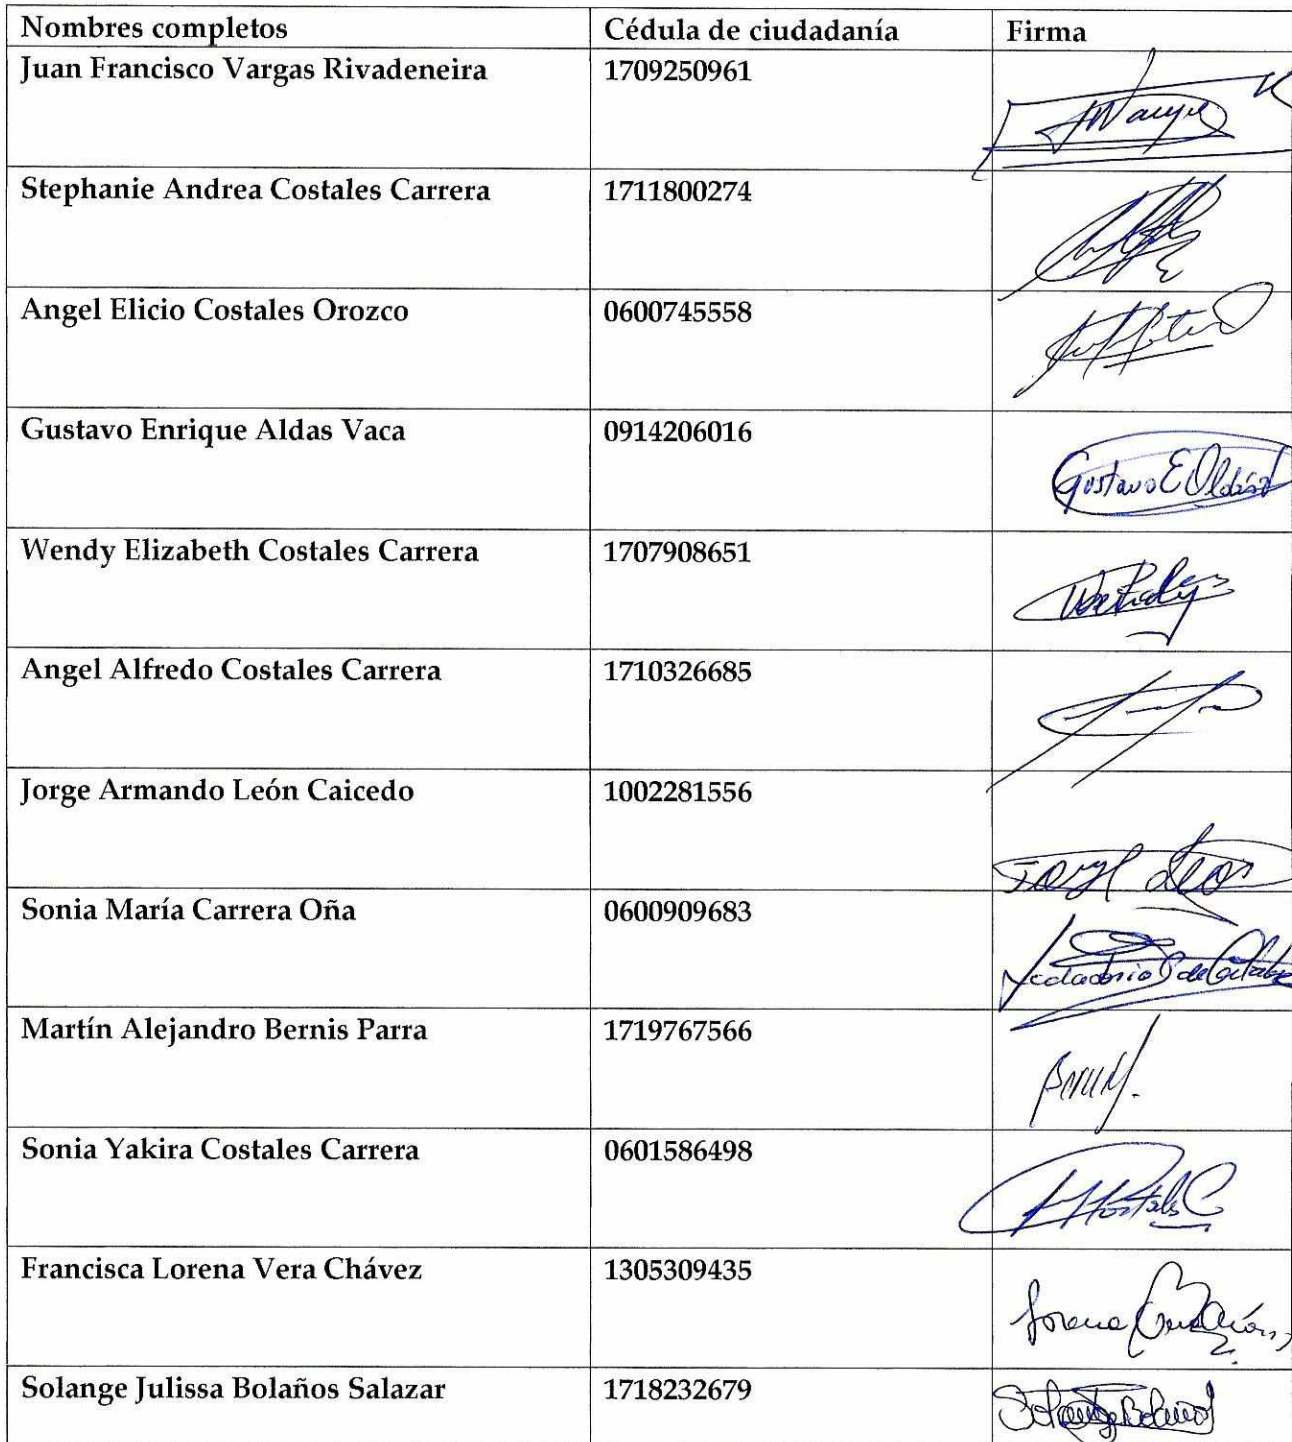 Nombres completos Cédula de ciudadanía Firma
Juan Francisco Vargas Rivadeneira 1709250961
Stephanie Andrea Costales Carrera 1711800274
Angel Elicio Costales Orozco 0600745558
Gustavo Enrique Aldas Vaca 0914206016 Gustavo E
Wendy Elizabeth Costales Carrera 1707908651
Angel Alfredo Costales Carrera 1710326685
Jorge Armando León Caicedo 1002281556
Sonia María Carrera Oña 0600909683
Martín Alejandro Bernis Parra 1719767566
Sonia Yakira Costales Carrera 0601586498
Francisca Lorena Vera Chávez 1305309435 Lorena
Solange Julissa Bolaños Salazar 1718232679 Solange Bolaños